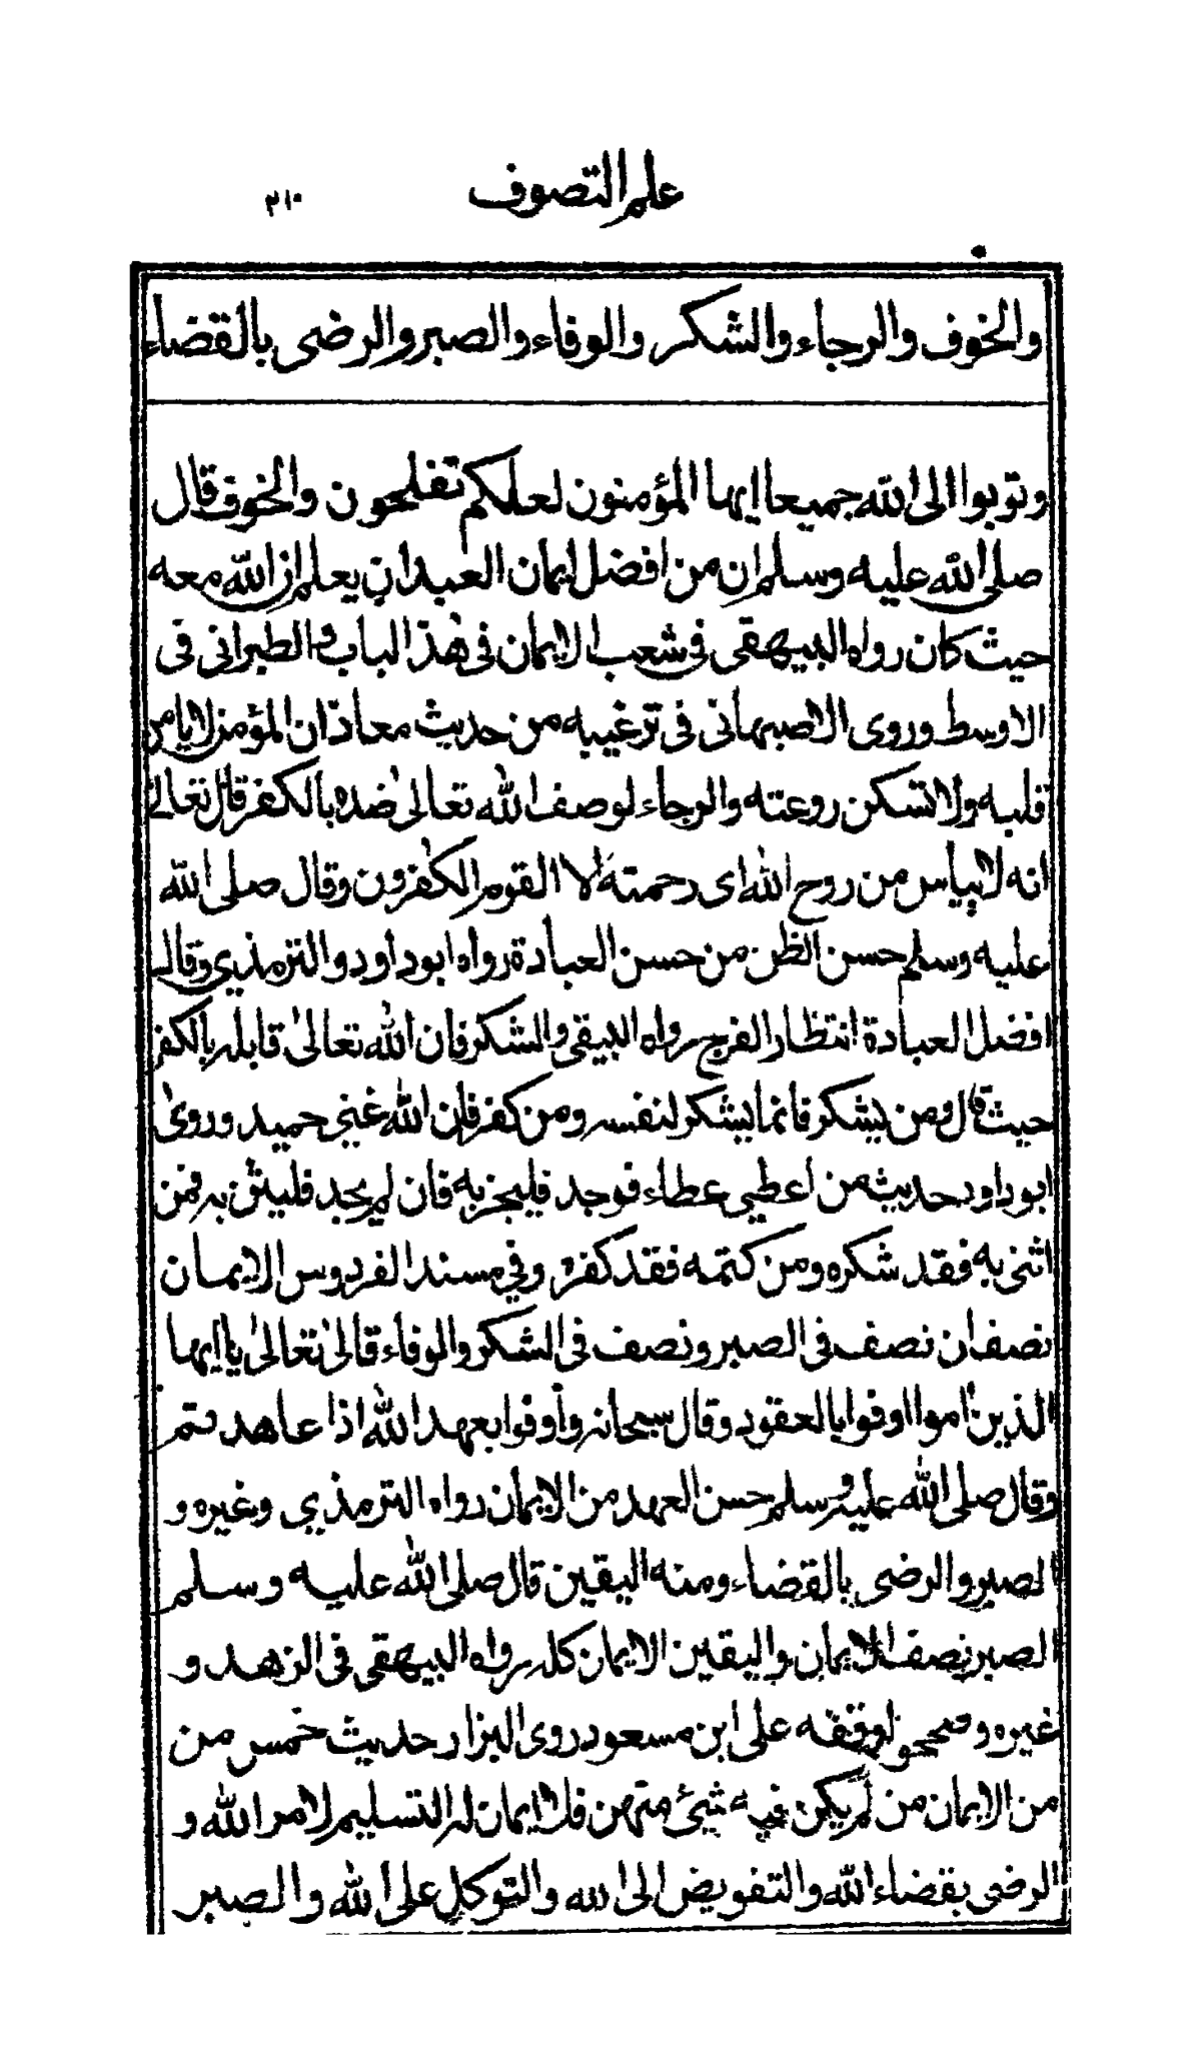 علم التصوف ٢١٠
والخوف والرجاء والشكر والوفاء والصبر والرضى بالقضاء
وتوبوا الى الله جميعا ايها المؤمنون لعلكم تفلحون والخوف قال
صلى الله عليه وسلم ان من افضل ايمان العبد ان يعلم ان الله معه
حيث كان رواه البيهقى فى شعب الايمان فى هذا الباب والطبرانى فى
الاوسط وروى الاصبهانى فى ترغيبه من حديث معاذ ان المؤمن لا يامن
قلبه ولا تسكن روعته والرجاء لوصف الله تعالى ضده بالكفر قال تعالى
انه لا ييأس من روح الله اى رحمته الا القوم الكفرون وقال صلى الله
عليه وسلم حسن الظن من حسن العبادة رواه ابوداود والترمذي وقال
افضل العبادة انتظار الفرج رواه البيقى والشكر فان الله تعالى قابله بالكفر
حيث قال ومن يشكر فانما يشكر لنفسه ومن كفر فان الله غني حميد وروى
ابوداود حديث من اعطي عطاء فوجد فليجز به فان لم يجد فليثن به فمن
اثنى به فقد شكره ومن كتمه فقد كفره وفي مسند الفردوس الايمان
نصفان نصف فى الصبر ونصف فى الشكر والوفاء قال تعالى يا ايها
الذين امنوا اوفوا بالعقود وقال سبحانه وأوفوا بعهد الله اذا عاهدتم
وقال صلى الله عليه وسلم حسن العهد من الايمان رواه الترمذي وغيره و
الصبر والرضى بالقضاء ومنه اليقين قال صلى الله عليه وسلم
الصبر نصف الايمان واليقين الايمان كله رواه البيهقى فى الزهد و
غيره وصححو لوقفه على ابن مسعود روى البزار حديث خمس من
من الايمان من لم يكن فيه شيئ منهن فلا ايمان له التسليم لامر الله و
الرضى بقضاء الله والتفويض الى الله والتوكل على الله والصبر